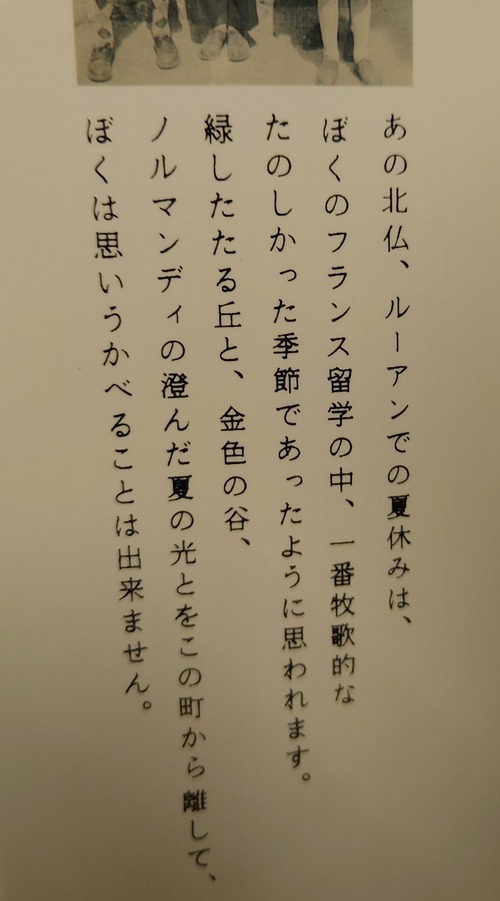 あの北仏、ルーアンでの夏休みは、
ぼくのフランス留学の中、一番牧歌的な
たのしかった季節であったように思われます。
緑したたる丘と、金色の谷、
ノルマンディの澄んだ夏の光とをこの町から離して、
ぼくは思いうかべることは出来ません。